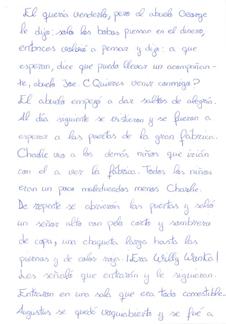 El quería venderlo, pero el abuelo George
le dijo: solo los bobos piensan en el dinero,
entonces volvió a pensar y dijo: a que
esperan, dice que puedo llevar un acompañan-
te, abuelo Joe ¿Quieres venir conmigo?
El abuelo empezo a dar saltos de alegría.
Al día siguiente se vistieron y se fueron a
esperar a las puertas de la gran fábrica.
Charlie vio a los demás niños que irían
con el a ver la fábrica. Todos los niños
eran un poco maleducados menos Charlie.
De repente se abrieron las puertas y salió
un señor alto con pelo corto y sombrero
de copa, una chaqueta larga hasta las
piernas y de color rojo. ¡Era Willy Wonka!
Les señaló que entrarán y le siguieran.
Entraron en una sala que era todo comestible.
Augustus se quedó boquiabierto y se fué a